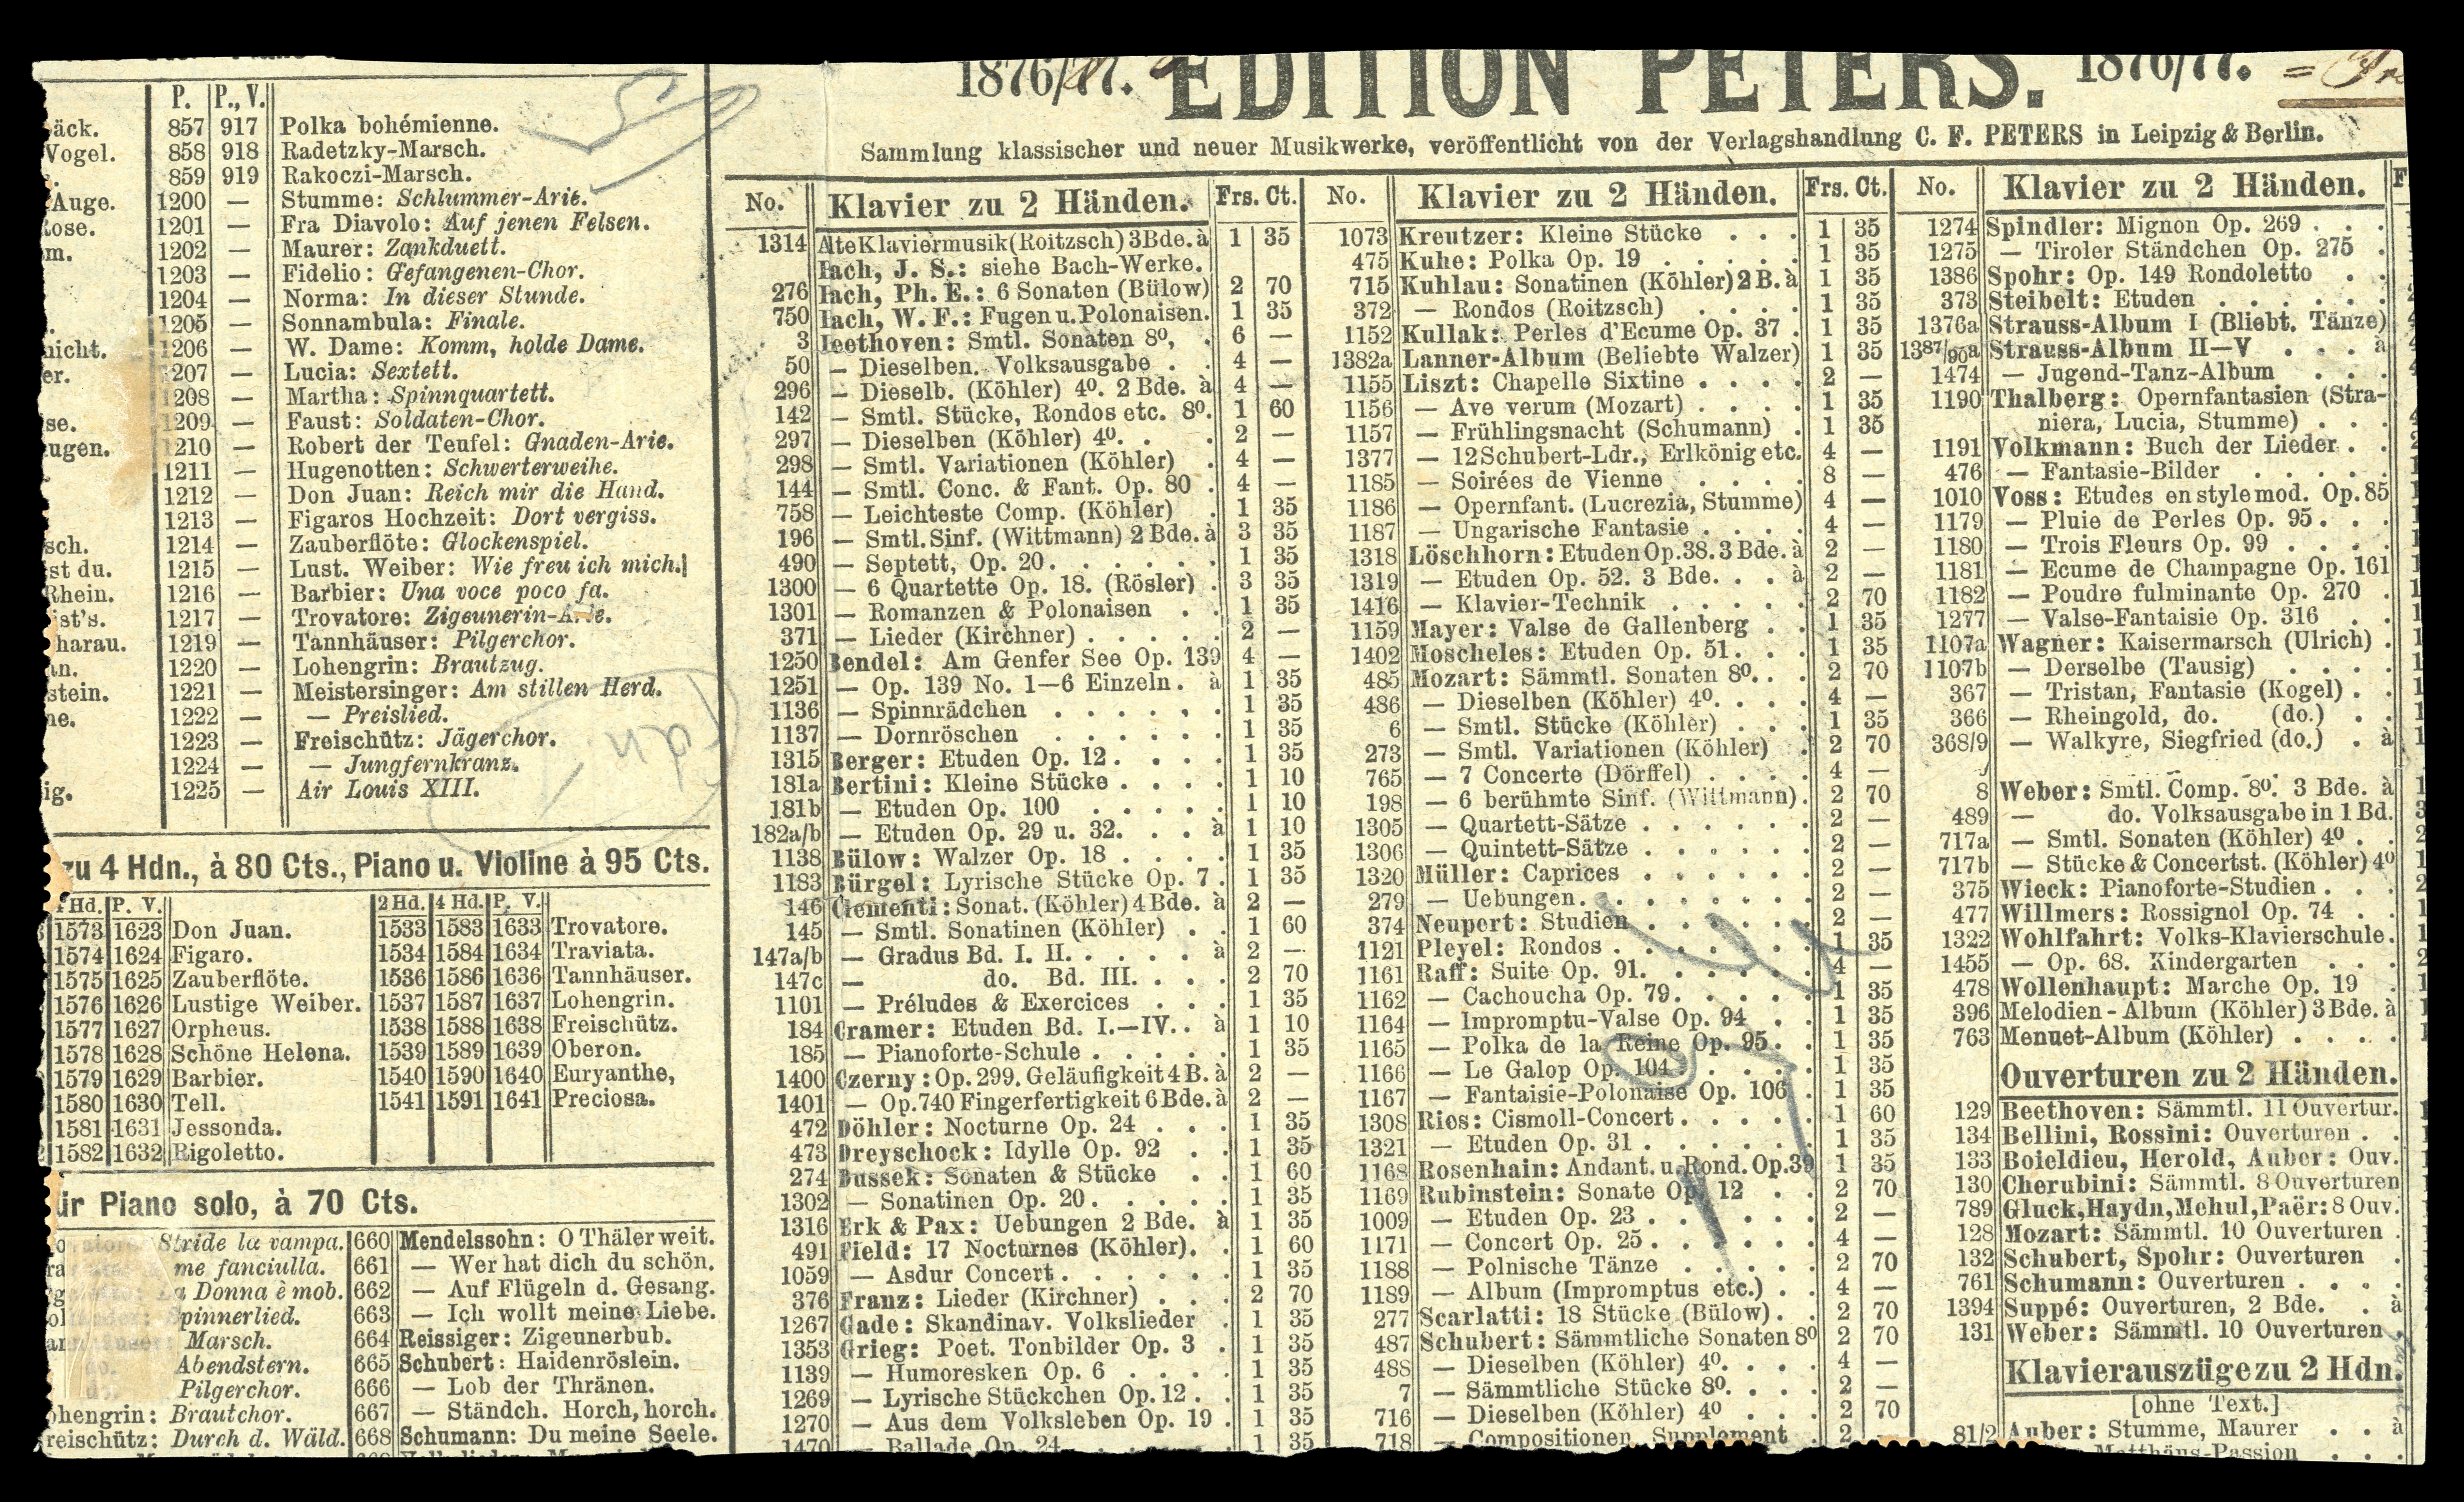 P. P., V.
äck. 857 917 Polka bohémienne.
Vogel. 858 918 Radetzky-Marsch.
859 919 Rakoczi-Marsch.
Auge. 1200 — Stumme: Schlummer-Arie.
Rose. 1201 — Fra Diavolo: Auf jenen Felsen.
m. 1202 — Maurer: Zankduett.
1203 — Fidelio: Gefangenen-Chor.
1204 — Norma: In dieser Stunde.
1205 — Sonnambula: Finale.
nicht. 1206 — W. Dame: Komm, holde Dame.
er. 1207 — Lucia: Sextett.
1208 — Martha: Spinnquartett.
se. 1209 — Faust: Soldaten-Chor.
ugen. 1210 — Robert der Teufel: Gnaden-Arie.
1211 — Hugenotten: Schwerterweihe.
1212 — Don Juan: Reich mir die Hand.
1213 — Figaros Hochzeit: Dort vergiss.
sch. 1214 — Zauberflöte: Glockenspiel.
st du. 1215 — Lust. Weiber: Wie freu ich mich.
Rhein. 1216 — Barbier: Una voce poco fa.
ist's. 1217 — Trovatore: Zigeunerin-Arie.
harau. 1219 — Tannhäuser: Pilgerchor.
an. 1220 — Lohengrin: Brautzug.
stein. 1221 — Meistersinger: Am stillen Herd.
ne. 1222 — — Preislied.
1223 — Freischütz: Jägerchor.
1224 — — Jungfernkranz.
ig. 1225 — Air Louis XIII.
zu 4 Hdn., à 80 Cts., Piano u. Violine à 95 Cts.
Hd. P. V. 2 Hd. 4 Hd. P. V.
1573 1623 Don Juan. 1533 1583 1633 Trovatore.
1574 1624 Figaro. 1534 1584 1634 Traviata.
1575 1625 Zauberflöte. 1536 1586 1636 Tannhäuser.
1576 1626 Lustige Weiber. 1537 1587 1637 Lohengrin.
1577 1627 Orpheus. 1538 1588 1638 Freischütz.
1578 1628 Schöne Helena. 1539 1589 1639 Oberon.
1579 1629 Barbier. 1540 1590 1640 Euryanthe,
1580 1630 Tell. 1541 1591 1641 Preciosa.
1581 1631 Jessonda.
1582 1632 Rigoletto.
ür Piano solo, à 70 Cts.
Stride la vampa. 660 Mendelssohn: O Thäler weit.
me fanciulla. 661 — Wer hat dich du schön.
La Donna è mob. 662 — Auf Flügeln d. Gesang.
Spinnerlied. 663 — Ich wollt meine Liebe.
Marsch. 664 Reissiger: Zigeunerbub.
Abendstern. 665 Schubert: Haidenröslein.
Pilgerchor. 666 — Lob der Thränen.
ohengrin: Brautchor. 667 — Ständch. Horch, horch.
reischütz: Durch d. Wäld. 668 Schumann: Du meine Seele.
1876/77. EDITION PETERS. 1876/77.
Sammlung klassischer und neuer Musikwerke, veröffentlicht von der Verlagshandlung C. F. PETERS in Leipzig & Berlin.
No. Klavier zu 2 Händen. Frs. Ct.
1314 Alte Klaviermusik (Roitzsch) 3 Bde. à 1 35
Bach, J. S.: siehe Bach-Werke.
276 Bach, Ph. E.: 6 Sonaten (Bülow) 2 70
750 Bach, W. F.: Fugen u. Polonaisen. 1 35
3 Beethoven: Smtl. Sonaten 8º, . 6 —
50 — Dieselben. Volksausgabe . . 4 —
296 — Dieselb. (Köhler) 4º. 2 Bde. à 4 —
142 — Smtl. Stücke, Rondos etc. 8º. 1 60
297 — Dieselben (Köhler) 4º. . . 2 —
298 — Smtl. Variationen (Köhler) . 4 —
144 — Smtl. Conc. & Fant. Op. 80 . 4 —
758 — Leichteste Comp. (Köhler) . 1 35
196 — Smtl. Sinf. (Wittmann) 2 Bde. à 3 35
490 — Septett, Op. 20. . . . . . 1 35
1300 — 6 Quartette Op. 18. (Rösler) . 3 35
1301 — Romanzen & Polonaisen . . 1 35
371 — Lieder (Kirchner) . . . . . 2 —
1250 Bendel: Am Genfer See Op. 139 4 —
1251 — Op. 139 No. 1—6 Einzeln. à 1 35
1136 — Spinnrädchen . . . . . . 1 35
1137 — Dornröschen . . . . . . 1 35
1315 Berger: Etuden Op. 12 . . . . 1 35
181a Bertini: Kleine Stücke . . . . 1 10
181b — Etuden Op. 100 . . . . . 1 10
182a/b — Etuden Op. 29 u. 32. . . à 1 10
1138 Bülow: Walzer Op. 18 . . . . 1 35
1183 Bürgel: Lyrische Stücke Op. 7 . 1 35
146 Clementi: Sonat. (Köhler) 4 Bde. à 2 —
145 — Smtl. Sonatinen (Köhler) . . 1 60
147a/b — Gradus Bd. I. II. . . . . à 2 —
147c — do. Bd. III. . . . 2 70
1101 — Préludes & Exercices . . . 1 35
184 Cramer: Etuden Bd. I.—IV. . à 1 10
185 — Pianoforte-Schule . . . . . 1 35
1400 Czerny: Op. 299. Geläufigkeit 4 B. à 2 —
1401 — Op. 740 Fingerfertigkeit 6 Bde. à 2 —
472 Döhler: Nocturne Op. 24 . . . 1 35
473 Dreyschock: Idylle Op. 92 . . 1 35
274 Dussek: Sonaten & Stücke . . 1 60
1302 — Sonatinen Op. 20. . . . . 1 35
1316 Erk & Pax: Uebungen 2 Bde. à 1 35
491 Field: 17 Nocturnes (Köhler). . 1 60
1059 — Asdur Concert . . . . . . 1 35
376 Franz: Lieder (Kirchner) . . . 2 70
1267 Gade: Skandinav. Volkslieder . 1 35
1353 Grieg: Poet. Tonbilder Op. 3 . 1 35
1139 — Humoresken Op. 6 . . . . 1 35
1269 — Lyrische Stückchen Op. 12 . . 1 35
1270 — Aus dem Volksleben Op. 19 . 1 35
1470 — Ballade Op. 24 1 35
No. Klavier zu 2 Händen. Frs. Ct.
1073 Kreutzer: Kleine Stücke . . . 1 35
475 Kuhe: Polka Op. 19 . . . . . 1 35
715 Kuhlau: Sonatinen (Köhler) 2 B. à 1 35
372 — Rondos (Roitzsch) . . . . 1 35
1152 Kullak: Perles d'Ecume Op. 37 . 1 35
1382a Lanner-Album (Beliebte Walzer) 1 35
1155 Liszt: Chapelle Sixtine . . . . 2 —
1156 — Ave verum (Mozart) . . . . 1 35
1157 — Frühlingsnacht (Schumann) . 1 35
1377 — 12 Schubert-Ldr., Erlkönig etc. 4 —
1185 — Soirées de Vienne . . . . 8 —
1186 — Opernfant. (Lucrezia, Stumme) 4 —
1187 — Ungarische Fantasie . . . . 4 —
1318 Löschhorn: Etuden Op. 38. 3 Bde. à 2 —
1319 — Etuden Op. 52. 3 Bde. . . à 2 —
1416 — Klavier-Technik . . . . . 2 70
1159 Mayer: Valse de Gallenberg . . 1 35
1402 Moscheles: Etuden Op. 51. . . 1 35
485 Mozart: Sämmtl. Sonaten 8º. . . 2 70
486 — Dieselben (Köhler) 4º. . . . 4 —
6 — Smtl. Stücke (Köhler) . . . 1 35
273 — Smtl. Variationen (Köhler) . 2 70
765 — 7 Concerte (Dörffel) . . . . 4 —
198 — 6 berühmte Sinf. (Wittmann) . 2 70
1305 — Quartett-Sätze . . . . . . 2 —
1306 — Quintett-Sätze . . . . . . 2 —
1320 Müller: Caprices . . . . . . 2 —
279 — Uebungen. . . . . . . . 2 —
374 Neupert: Studien . . . . . . 2 —
1121 Pleyel: Rondos . . . . . . . 1 35
1161 Raff: Suite Op. 91. . . . . . 4 —
1162 — Cachoucha Op. 79. . . . . 1 35
1164 — Impromptu-Valse Op. 94 . . 1 35
1165 — Polka de la Reine Op. 95. . 1 35
1166 — Le Galop Op. 104 . . . . . 1 35
1167 — Fantaisie-Polonaise Op. 106 1 35
1308 Ries: Cismoll-Concert . . . . . 1 60
1321 — Etuden Op. 31 . . . . . . 1 35
1168 Rosenhain: Andant. u. Rond. Op. 39 1 35
1169 Rubinstein: Sonate Op. 12 . . 2 70
1009 — Etuden Op. 23 . . . . . . 2 —
1171 — Concert Op. 25 . . . . . . 4 —
1188 — Polnische Tänze . . . . . 2 70
1189 — Album (Impromptus etc.) . . 4 —
277 Scarlatti: 18 Stücke (Bülow) . . 2 70
487 Schubert: Sämmtliche Sonaten 8º 2 70
488 — Dieselben (Köhler) 4º. . . . 4 —
7 — Sämmtliche Stücke 8º. . . . 2 —
716 — Dieselben (Köhler) 4º . . . 2 70
718 — Compositionen, Supplement . 2 —
No. Klavier zu 2 Händen. F
1274 Spindler: Mignon Op. 269 . . .
1275 — Tiroler Ständchen Op. 275 .
1386 Spohr: Op. 149 Rondoletto . .
373 Steibelt: Etuden . . . . . .
1376a Strauss-Album I (Bliebt. Tänze)
1387/90a Strauss-Album II—V . . . à
1474 — Jugend-Tanz-Album . . .
1190 Thalberg: Opernfantasien (Stra-
niera, Lucia, Stumme) . . .
1191 Volkmann: Buch der Lieder . .
476 — Fantasie-Bilder . . . . .
1010 Voss: Etudes en style mod. Op. 85
1179 — Pluie de Perles Op. 95 . . .
1180 — Trois Fleurs Op. 99 . . . .
1181 — Ecume de Champagne Op. 161
1182 — Poudre fulminante Op. 270 .
1277 — Valse-Fantaisie Op. 316 . .
1107a Wagner: Kaisermarsch (Ulrich) .
1107b — Derselbe (Tausig) . . . .
367 — Tristan, Fantasie (Kogel) . .
366 — Rheingold, do. (do.) . .
368/9 — Walkyre, Siegfried (do.) . à
8 Weber: Smtl. Comp. 8º. 3 Bde. à
489 — do. Volksausgabe in 1 Bd.
717a — Smtl. Sonaten (Köhler) 4º . .
717b — Stücke & Concertst. (Köhler) 4º
375 Wieck: Pianoforte-Studien . . .
477 Willmers: Rossignol Op. 74 . .
1322 Wohlfahrt: Volks-Klavierschule .
1455 — Op. 68. Kindergarten . . .
478 Wollenhaupt: Marche Op. 19 .
396 Melodien-Album (Köhler) 3 Bde. à
763 Menuet-Album (Köhler) . . . .
Ouverturen zu 2 Händen.
129 Beethoven: Sämmtl. 11 Ouvertur.
134 Bellini, Rossini: Ouverturen . .
133 Boieldieu, Herold, Auber: Ouv.
130 Cherubini: Sämmtl. 8 Ouverturen
789 Gluck, Haydn, Mehul, Paër: 8 Ouv.
128 Mozart: Sämmtl. 10 Ouverturen .
132 Schubert, Spohr: Ouverturen .
761 Schumann: Ouverturen . . . .
1394 Suppé: Ouverturen, 2 Bde. . à
131 Weber: Sämmtl. 10 Ouverturen .
Klavierauszüge zu 2 Hdn.
[ohne Text.]
81/2 Auber: Stumme, Maurer . . à
Matthäus-Passion . .